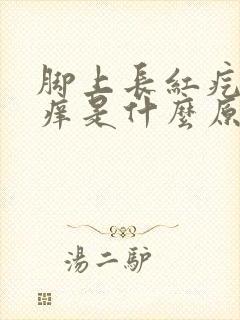 脚上長紅疙
痒是什麼原
湯二驴